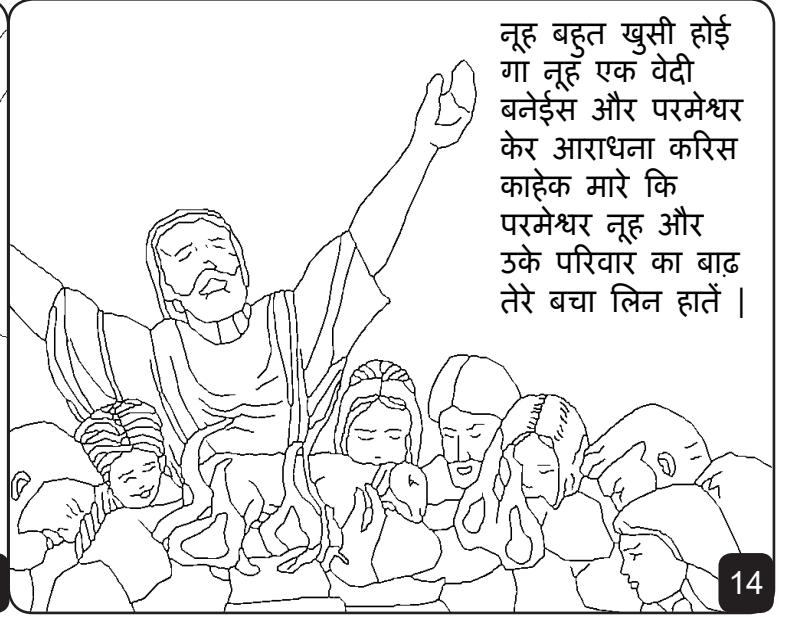 नूह बहुत खुसी होई
गा नूह एक वेदी
बनेईस और परमेश्वर
केर आराधना करिस
काहेक मारे कि
परमेश्वर नूह और
उके परिवार का बाढ़
तेरे बचा लिन हातें |
14